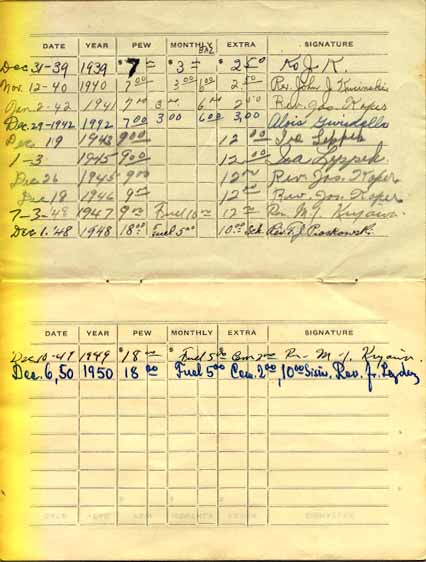 DATE YEAR PEW MONTHLY BAL EXTRA SIGNATURE
Dec 31-39 1939 $7 $3 $2.50 Ks J. K.
Nov. 12-40 1940 7.00 3.00 6.00 2.50 Rev. John J.
Jan 2-42 1941 7.00 3.00 6.00 2.00 Rev. Jos. Koper
Dec 29-1942 1992 7.00 3.00 6.00 3.00 Alois
Dec 19 1943 9.00 12.00 Iva Leppek
1-3 1945 9.00 12.00 Iva Leppek.
Dec 26 1945 9.00 12.00 Rev. Jos. Koper
Dec 18 1946 9.00 12.00 Rev. Jos. Koper
7-3-48 1947 9.00 Fuel 10.00 12.00 Rev. M. J.
Dec 1.'48 1948 18.00 Fuel 5.00 10.00 Sch. Rev. F. J. Piaskowski.
DATE YEAR PEW MONTHLY EXTRA SIGNATURE
Dec 10-49 1949 $18.00 Fuel 5.00 Cem 2.00 Rev. M. J.
Dec. 6, 50 1950 18.00 Fuel 5.00 Cem. 2.00, 10.00 Rev. Jr.